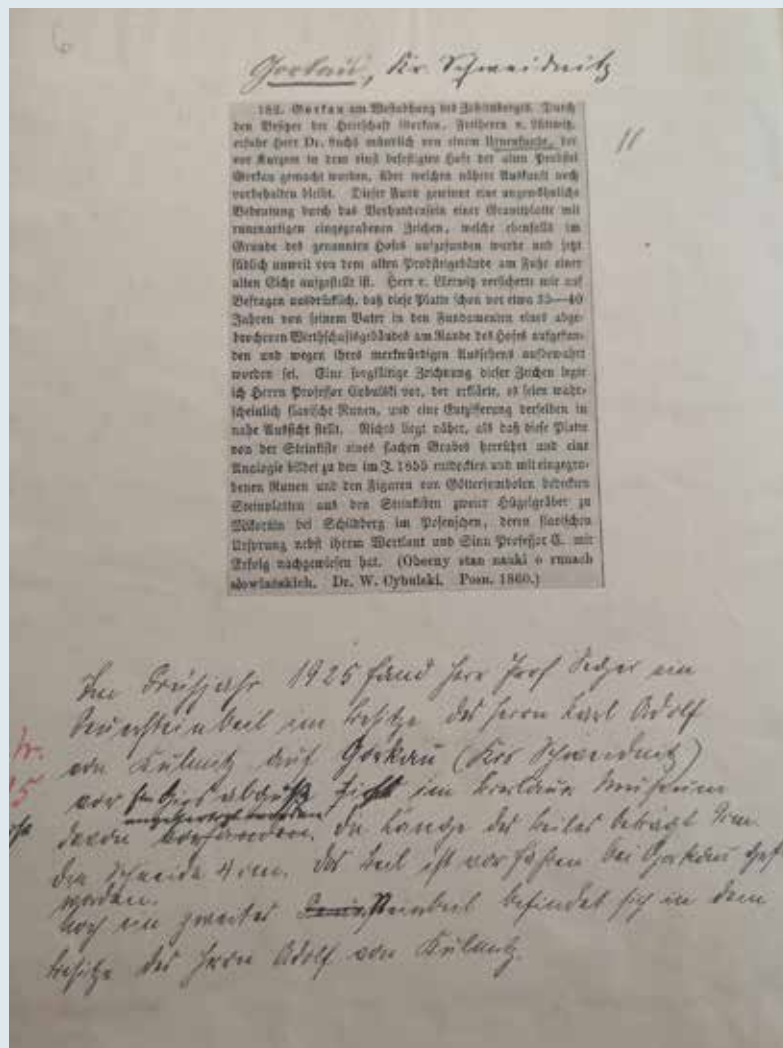 6
Gorkau, Kr. Schweidnitz
182. Gorkau am Westabhang des Zobtenberges. Durch
den Besitzer der Herrschaft Gorkau, Freiherrn v. Lüttwitz,
erfuhr Herr Dr. Fuchs mündlich von einem Urnenfunde, der
vor Kurzem in dem einst befestigten Hofe der alten Probstei
Gorkau gemacht worden, über welchen nähere Auskunft noch
vorbehalten bleibt. Dieser Fund gewinnt eine ungewöhnliche
Bedeutung durch das Vorhandensein einer Granitplatte mit
runenartigen eingegrabenen Zeichen, welche ebenfalls im
Grunde des genannten Hofes aufgefunden wurde und jetzt
südlich unweit von dem alten Probsteigebäude am Fuße einer
alten Eiche aufgestellt ist. Herr v. versicherte mir auf
Befragen ausdrücklich, daß diese Platte schon vor etwa 35—40
Jahren von seinem Vater in den Fundamenten eines abge-
brochenen Wirthschaftsgebäudes am Rande des Hofes aufgefun-
den und wegen ihres merkwürdigen Aussehens aufbewahrt
worden sei. Eine sorgfältige Zeichnung dieser Zeichen legte
ich Herrn Professor Cybulski vor, der erklärte, es seien wahr-
scheinlich slavische Runen, und eine Entzifferung derselben in
nahe Aussicht stellt. Nichts liegt näher, als daß diese Platte
von der Steinkiste eines flachen Grabes herrührt und eine
Analogie bildet zu den im J. 1855 entdeckten und mit eingegra-
benen Runen und den Figuren von Göttersymbolen bedeckten
Steinplatten aus den Steinkisten zweier Hügelgräber zu
Mikorzin bei Schildberg im Posenschen, deren slavischen
Ursprung nebst ihrem Wortlaut und Sinn Professor C. mit
Erfolg nachgewiesen hat. (Obecny stan nauki o runach
słowiańskich. Dr. W. Cybulski. Posn. 1860.)
Im Frühjahr 1925 fand Herr Prof Seger ein
Feuersteinbeil im Besitze des Herrn Karl Adolf
von Kulmitz auf Gorkau (Krs Schweidnitz)
vor Gipsabguß im Breslauer Museum
davon vorhanden. Die Länge des Beiles beträgt
die Schneide 4 cm. Das Beil ist vor Jahren bei Gorkau gef
worden.
Noch ein zweites Steinbeil befindet sich in dem
Besitze des Herrn Adolf von Kulmitz.